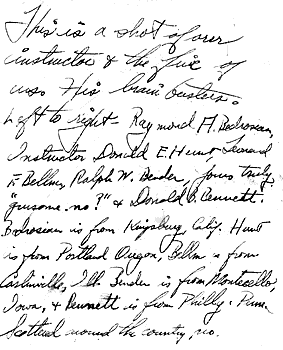 This is a shot of our
instructor & the five of
us. His brain busters.
Left to right Raymond A. Bedrosian,
Instructor Donald E. Hunt, Leonard
F. Bellm, Ralph W. Bender, yours truly,
"gruesome. no?" & Donald B. Bennett.
Bedrosian is from Kingsburg, Calif. Hunt
is from Portland Oregon, Bellm is from
Ill. Bender is from Monticello,
Iowa, & Bennett is from Philly - Penn.
Scattered around the country, no.